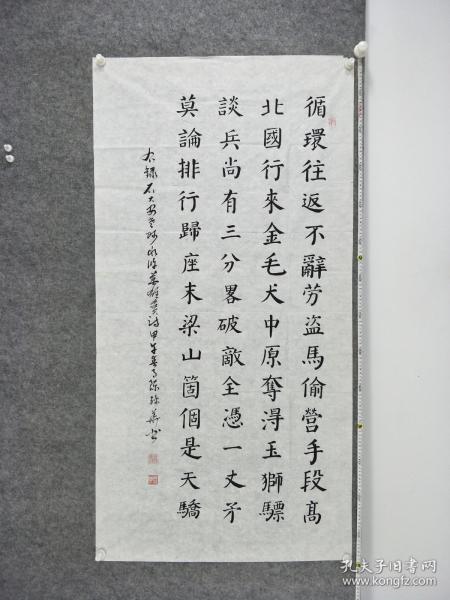 循環往返不辭劳盗馬偷營手段髙
北國行來金毛犬中原奪淂玉獅驃
談兵尚有三分畧破敵全憑一丈矛
莫論排行歸座末梁山箇個是天驕
孔夫子旧书网
www.kongfz.com